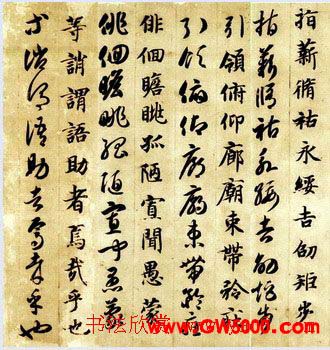 指薪脩祜永綏吉劭矩步
指薪脩祜永綏吉劭矩步
引領俯仰廊廟束帶矜莊
引領俯仰廊廟束帶矜莊
徘徊瞻眺孤陋寡聞愚蒙
徘徊瞻眺孤陋寡聞愚蒙
等誚謂語助者焉哉乎也
等誚謂語助者焉哉乎也
书法欣赏 www.GW5000.com